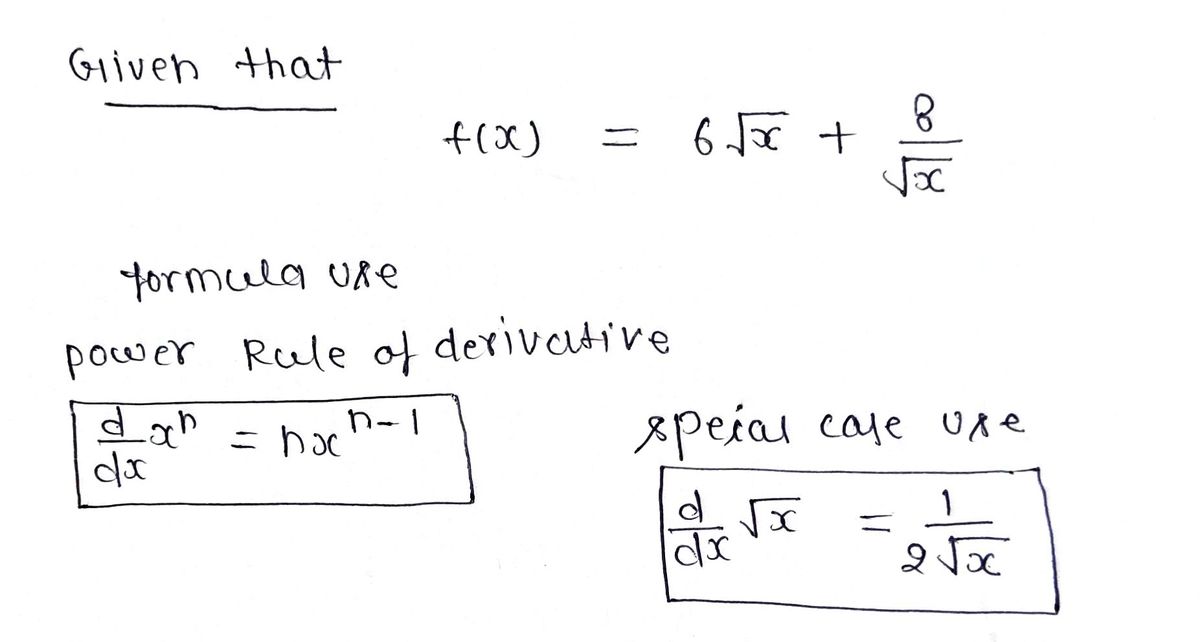 Given that
f(x) = 6√x + 8/√x
formula use
power Rule of derivative
d/dx xⁿ = nxⁿ⁻¹
speial case use
d/dx √x = 1/2√x